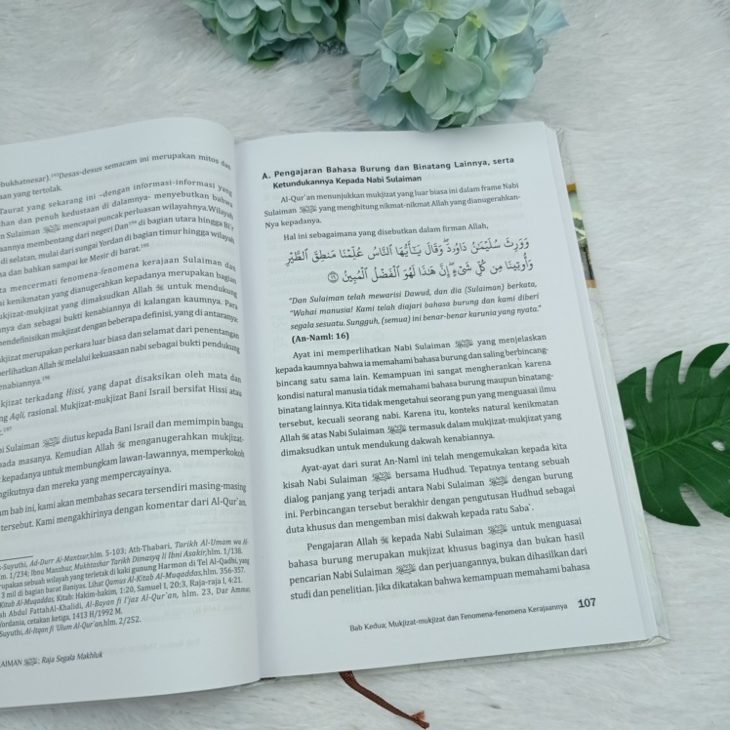 (bukhatnesar).¹⁹³Desas-desus semacam ini merupakan mitos dan
yang tertolak.
Taurat yang sekarang ini –dengan informasi-informasi yang
dan penuh kedustaan di dalamnya- menyebutkan bahwa
Sulaiman ﷺ mencapai puncak perluasan wilayahnya. Wilayah
membentang dari negeri Dan¹⁹⁴ di bagian utara hingga
di selatan, mulai dari sungai Yordan di bagian timur hingga wilayah
dan bahkan sampai ke Mesir di barat.¹⁹⁵
mencermati fenomena-fenomena kerajaan Sulaiman dan
kenikmatan yang dianugerahkan kepadanya merupakan bagian
mukjizat-mukjizat yang dimaksudkan Allah ﷻ untuk mendukung
dan sebagai bukti kenabiannya di kalangan kaumnya. Para
mendefinisikan mukjizat dengan beberapa definisi, yang di antaranya:
merupakan perkara luar biasa dan selamat dari penentangan
Allah ﷻ melalui kekuasaan nabi sebagai bukti pendukung
kenabiannya.¹⁹⁶
terkadang Hissi, yang dapat disaksikan oleh mata dan
Aqli, rasional. Mukjizat-mukjizat Bani Israil bersifat Hissi atau
Sulaiman ﷺ diutus kepada Bani Israil dan memimpin bangsa
pada masanya. Kemudian Allah ﷻ menganugerahkan mukjizat-
kepadanya untuk membungkam lawan-lawannya, memperkokoh
dan mereka yang mempercayainya.
bab ini, kami akan membahas secara tersendiri masing-masing
tersebut. Kami mengakhirinya dengan komentar dari Al-Qur'an,
Ad-Durr Al-Mantsur,hlm. 5-103; Ath-Thabari, Tarikh Al-Umam wa Al-
1/234; Ibnu Manzhur, Mukhtashar Tarikh Dimasyq li Ibni Asakir,hlm. 1/138.
sebuah wilayah yang terletak di kaki gunung Harmon di Tel Al-Qadhi, yang
3 mil di bagian barat Baniyas. Lihat Qamus Al-Kitab Al-Muqaddas,hlm. 356-357.
Kitab Al-Muqaddas, Kitab: Hakim-hakim, 1:20, Samuel I, 20:3, Raja-raja I, 4:21.
Abdul FattahAl-Khalidi, Al-Bayan fi I'jaz Al-Qur'an, hlm. 23, Dar Ammar,
cetakan ketiga, 1413 H/1992 M.
Suyuthi, Al-Itqan fi 'Ulum Al-Qur'an,hlm. 2/252.
SULAIMAN ﷺ: Raja Segala Makhluk
A. Pengajaran Bahasa Burung dan Binatang Lainnya, serta
Ketundukannya Kepada Nabi Sulaiman
Al-Qur'an menunjukkan mukjizat yang luar biasa ini dalam frame Nabi
Sulaiman ﷺ yang menghitung nikmat-nikmat Allah yang dianugerahkan-
Nya kepadanya.
Hal ini sebagaimana yang disebutkan dalam firman Allah,
وَوَرِثَ سُلَيْمَٰنُ دَاوُۥدَ ۖ وَقَالَ يَٰٓأَيُّهَا ٱلنَّاسُ عُلِّمْنَا مَنطِقَ ٱلطَّيْرِ
وَأُوتِينَا مِن كُلِّ شَىْءٍ ۖ إِنَّ هَٰذَا لَهُوَ ٱلْفَضْلُ ٱلْمُبِينُ ۝١٦
"Dan Sulaiman telah mewarisi Dawud, dan dia (Sulaiman) berkata,
"Wahai manusia! Kami telah diajari bahasa burung dan kami diberi
segala sesuatu. Sungguh, (semua) ini benar-benar karunia yang nyata."
(An-Naml: 16)
Ayat ini memperlihatkan Nabi Sulaiman ﷺ yang menjelaskan
kepada kaumnya bahwa ia memahami bahasa burung dan saling berbincang-
bincang satu sama lain. Kemampuan ini sangat mengherankan karena
kondisi natural manusia tidak memahami bahasa burung maupun binatang-
binatang lainnya. Kita tidak mengetahui seorang pun yang menguasai ilmu
tersebut, kecuali seorang nabi. Karena itu, konteks natural kenikmatan
Allah ﷻ atas Nabi Sulaiman ﷺ termasuk dalam mukjizat-mukjizat yang
dimaksudkan untuk mendukung dakwah kenabiannya.
Ayat-ayat dari surat An-Naml ini telah mengemukakan kepada kita
kisah Nabi Sulaiman ﷺ bersama Hudhud. Tepatnya tentang sebuah
dialog panjang yang terjadi antara Nabi Sulaiman ﷺ dengan burung
ini. Perbincangan tersebut berakhir dengan pengutusan Hudhud sebagai
duta khusus dan mengemban misi dakwah kepada ratu Saba`.
Pengajaran Allah ﷻ kepada Nabi Sulaiman ﷺ untuk menguasai
bahasa burung merupakan mukjizat khusus baginya dan bukan hasil
pencarian Nabi Sulaiman ﷺ dan perjuangannya, bukan dihasilkan dari
studi dan penelitian. Jika dikatakan bahwa kemampuan memahami bahasa
Bab Kedua; Mukjizat-mukjizat dan Fenomena-fenomena Kerajaannya 107